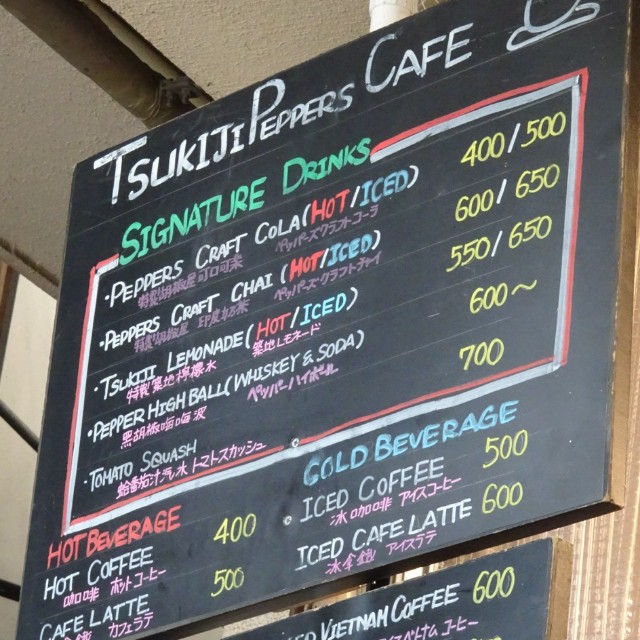 TSUKIJI PEPPERS CAFE
SIGNATURE DRINKS
・PEPPERS CRAFT COLA (HOT/ICED) 400/500
特製胡椒屋可口可楽 ペッパーズクラフトコーラ
・PEPPERS CRAFT CHAI (HOT/ICED) 600/650
特製胡椒屋 印度奶茶 ペッパーズ・クラフトチャイ
・TSUKIJI LEMONADE (HOT/ICED) 550/650
特製築地檸檬水 築地レモネード
・PEPPER HIGH BALL (WHISKEY & SODA) 600〜
黒胡椒嗨波 ペッパーハイボール
・TOMATO SQUASH 700
蛤番茄汁汽水 トマトスカッシュ
HOT BEVERAGE
HOT COFFEE 400
咖啡 ホットコーヒー
CAFE LATTE 500
カフェラテ
COLD BEVERAGE
ICED COFFEE 500
冰咖啡 アイスコーヒー
ICED CAFE LATTE 600
冰拿鉄 アイスラテ
VIETNAM COFFEE 600
コーヒー